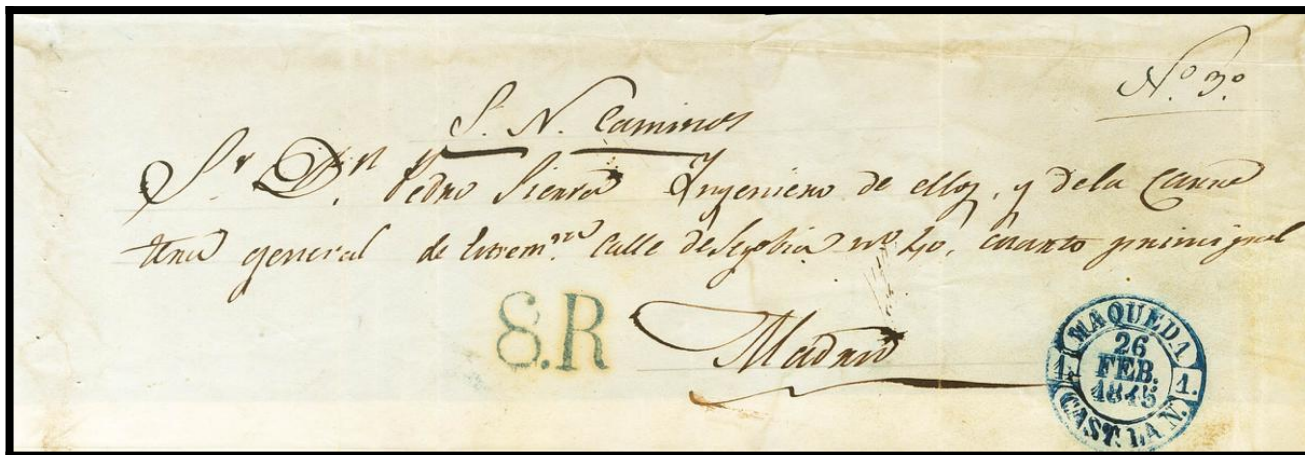 Nº 3º
S. N. Caminos
Sr Dn. Pedro Sierra Yngeniero de ellos, y dela Carre
tera general de Estremra. Calle de Segobia nº 40, cuarto principal
8.R
Madrid
MAQUEDA
1. 26 1.
FEB.
1845
CAST. LA N.